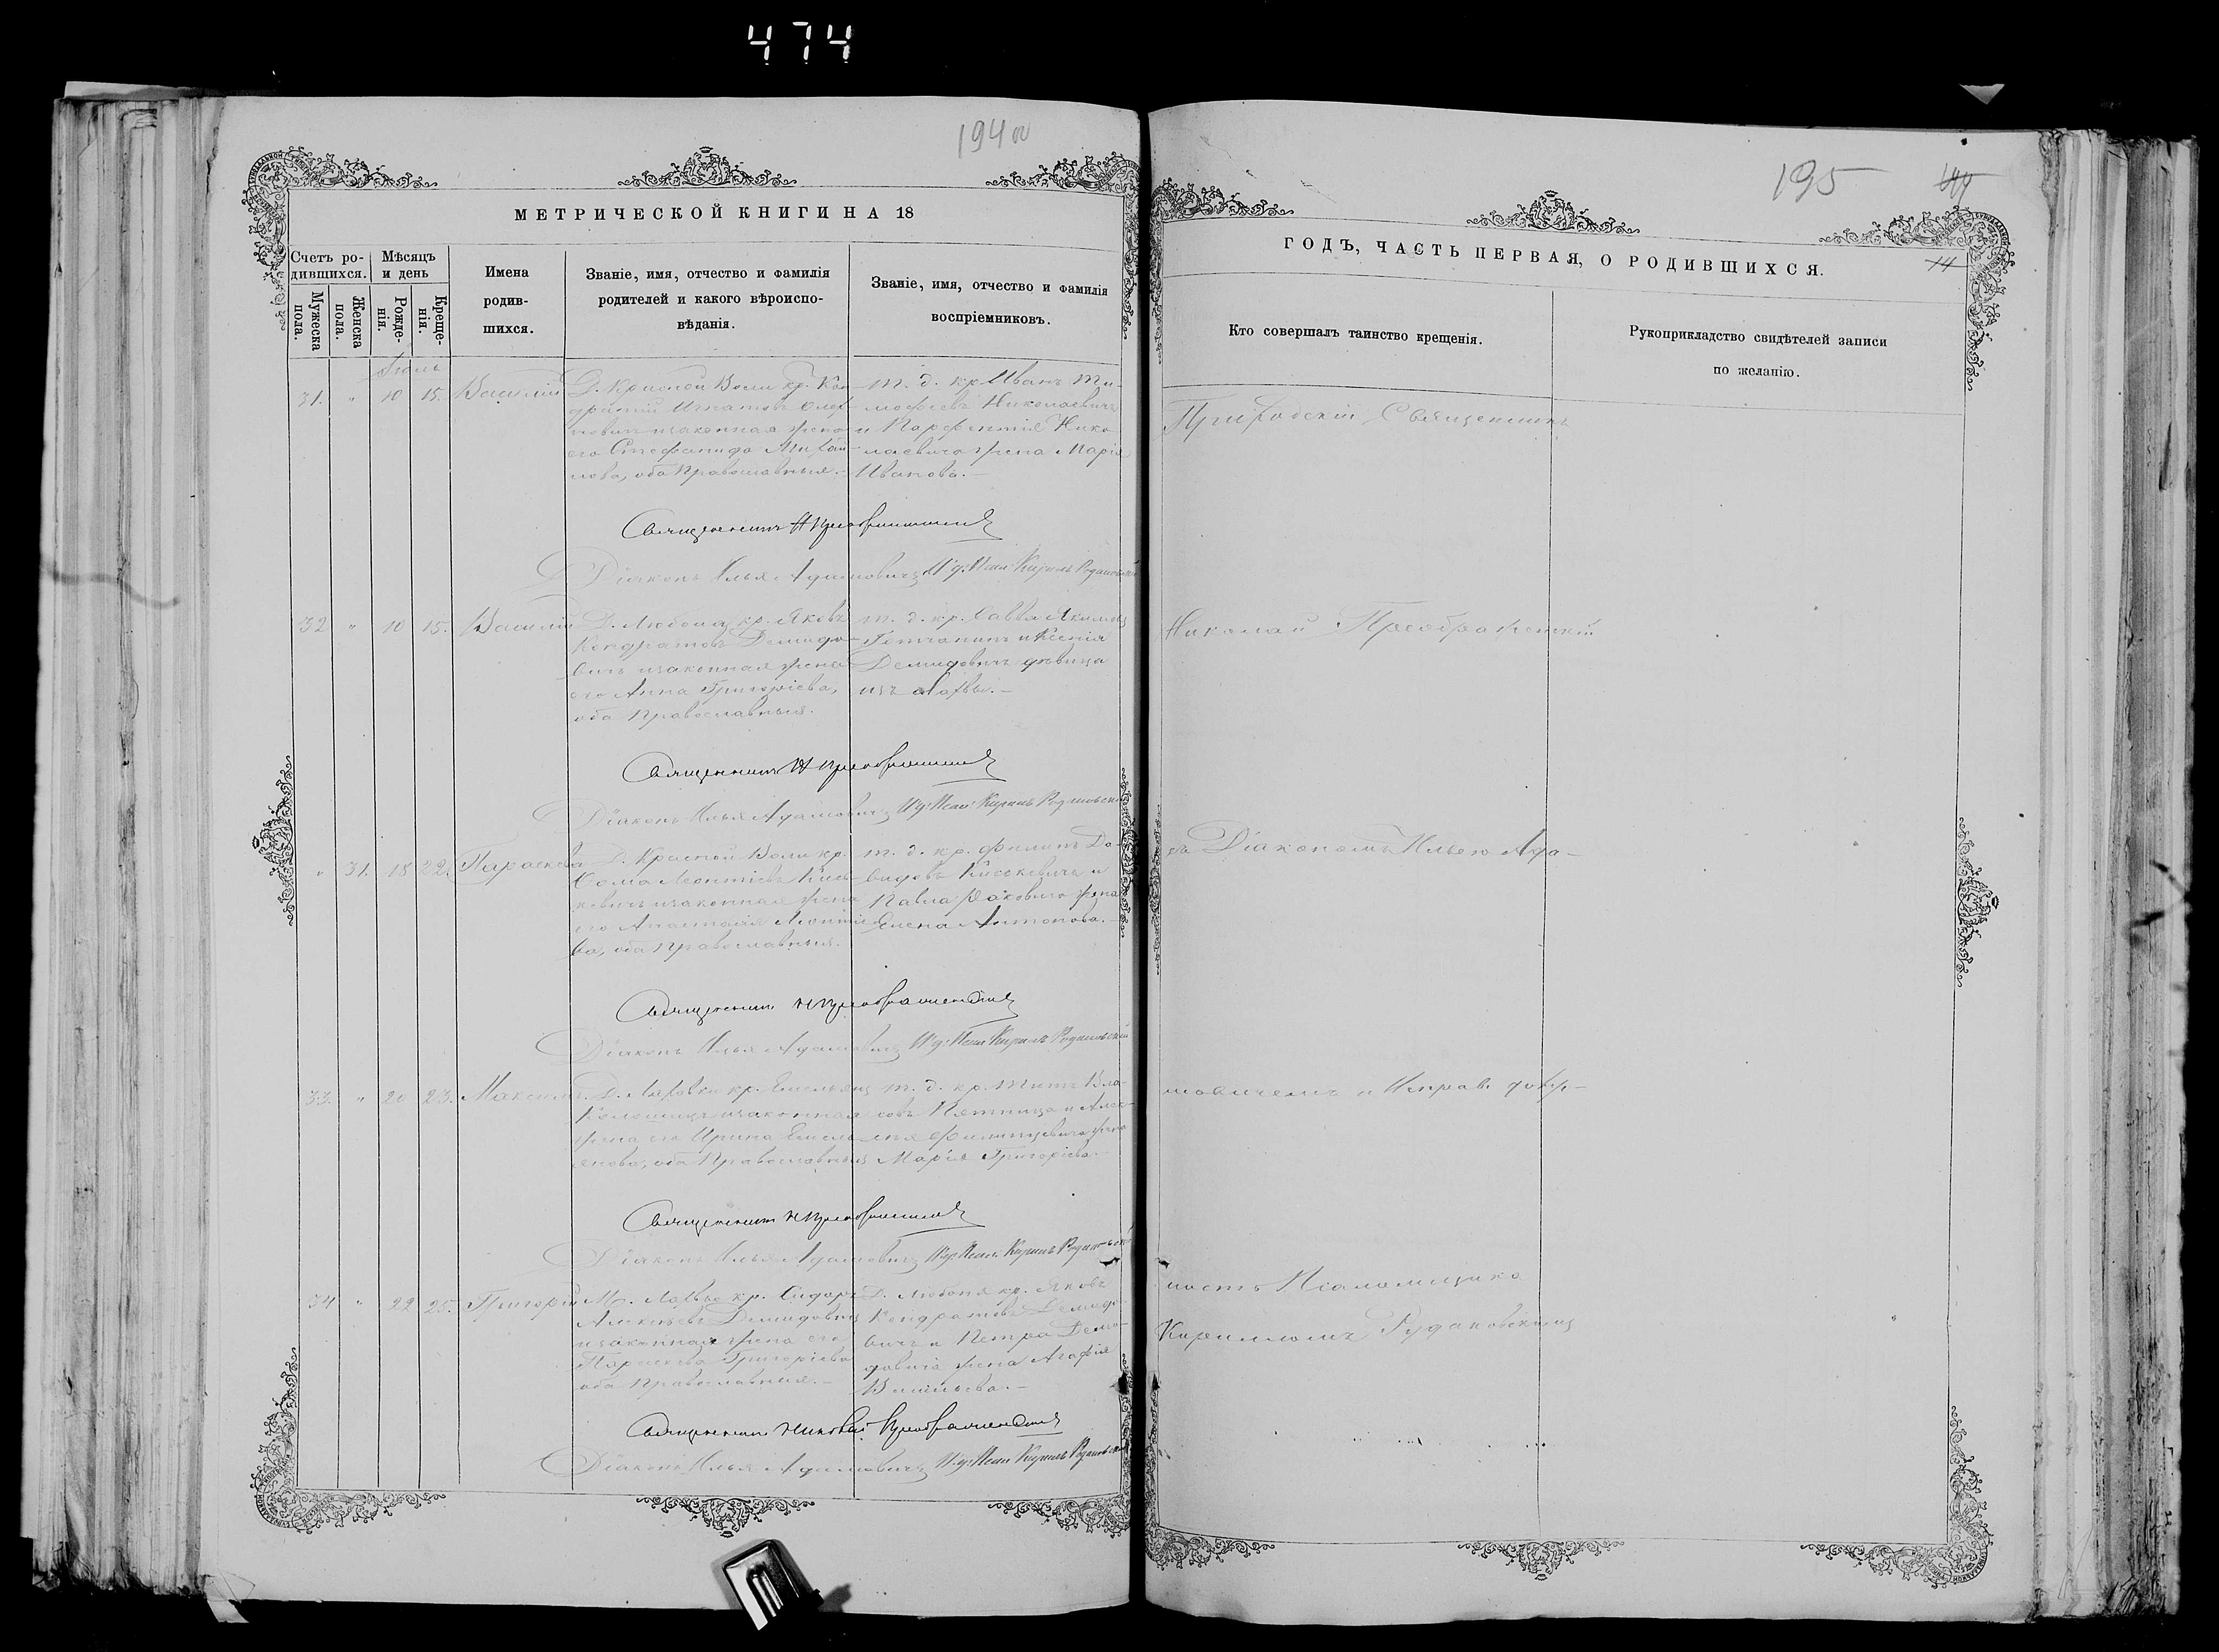 474
194 об
МЕТРИЧЕСКОЙ КНИГИ НА 18
Счетъ ро-
дившихся.
Мужеска
пола.
Женска
пола.
Мѣсяцъ
и день
Рожде-
нія.
Креще-
нія.
Имена
родив-
шихся.
Званіе, имя, отчество и фамилія
родителей и какого вѣроиспо-
вѣданія.
Званіе, имя, отчество и фамилія
воспріемниковъ.
Іюль
31. " 10 15. Василій
Д. Красной Воли кр.
законная жена
его Стефанида Михай-
лова, оба Православныя.-
т. д. кр. Иванъ Ти-
мофеевъ Николаевичъ
и Парфентія Нико-
лаевича жена Марія
Иванова.-
Священникъ Н Преображенскій
Діаконъ Илья Адамовичъ И. д. Псал. Кирилъ
32 " 10 15. Василій
Д. Любоня кр. Яковъ
Кондратовъ Демидо-
вичъ и законная жена
его Анна Григоріева,
оба Православныя.
т. д. кр. Савва Якимовъ
и Ксенія
Демидовичъ дѣвица
изъ Лахвы.-
Священникъ Н Преображенскій
Діаконъ Илья Адамовичъ И. д. Псал. Кирилъ
" 31. 18 22. Параскева
Д. Красной Воли кр.
Ѳома Леонтіевъ Кись-
кевичъ и законная жена
его Анастасія Леонтіе-
ва, оба Православныя.
т. д. кр. Филипъ Да-
видовъ Киськевичъ и
Павла жена
Елена Антонова.-
Священникъ Н Преображенскій
Діаконъ Илья Адамовичъ И. д. Псал. Кирилъ
33. " 20 23. Максимъ
Д. Ляховка кр. Емельянъ
и законная
жена его Ирина Емель-
янова, оба Православныя
т. д. кр. Титъ Вла-
совъ Пятница и Алек-
жена
Марія Григоріева.-
Священникъ Н Преображенскій
Діаконъ Илья Адамовичъ И. д. Псал. Кирилъ
34 " 22 25. Григорій
М. Лахвы кр. Сидоръ
Алексѣевъ Демидовичъ
и законная жена его
Параскева Григоріева
оба Православныя.-
Д. Любоня кр. Яковъ
Кондратовъ Демидо-
вичъ и Петра Деми-
довича жена Агафія
Васильева.-
Священникъ Николай Преображенскій
Діаконъ Илья Адамовичъ И. д. Псал. Кирилъ
195
14
ГОДЪ, ЧАСТЬ ПЕРВАЯ, О РОДИВШИХСЯ.
Кто совершалъ таинство крещенія.
Рукоприкладство свидѣтелей записи
по желанію.
Приходскій Священникъ
Николай Преображенскій
съ Діакономъ Ильею Ада-
мовичемъ и Исправ. долж-
ность Псаломщика
Кирилломъ